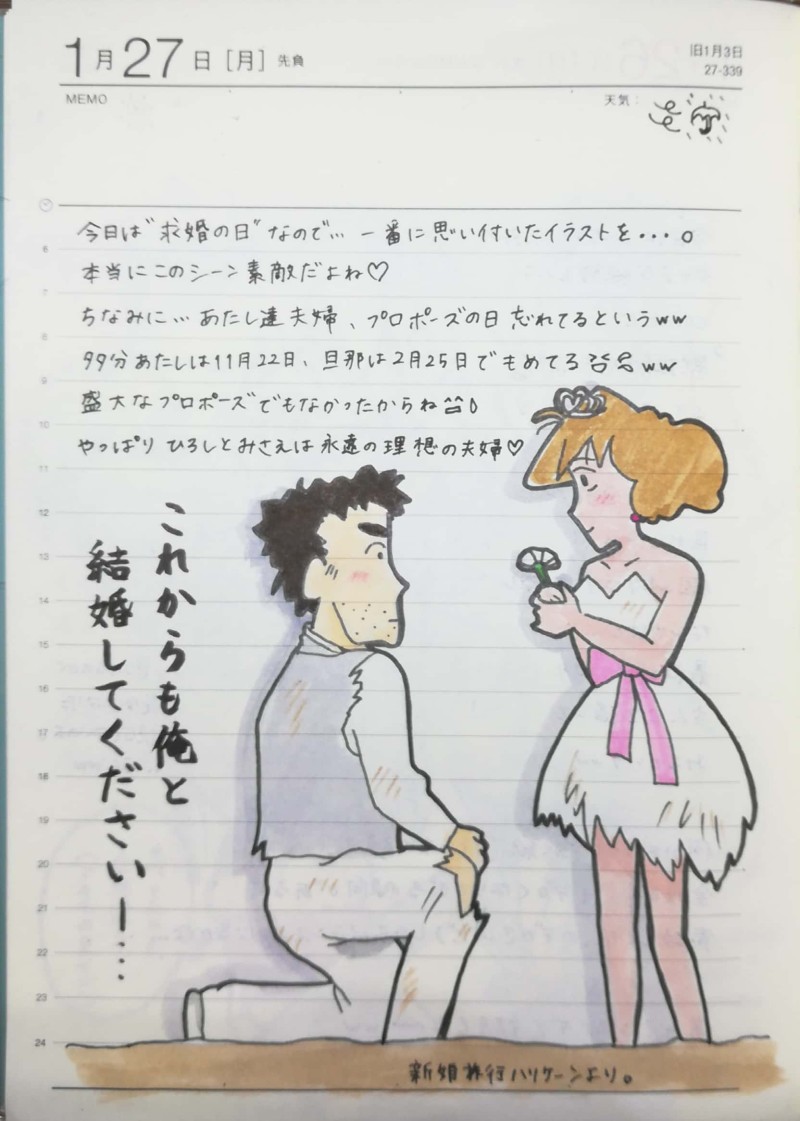 1月27日[月] 先負
旧1月3日
27-339
MEMO
天気:
今日は“求婚の日”なので… 一番に思い付いたイラストを・・・。
本当にこのシーン素敵だよね♡
ちなみに… あたし達夫婦、プロポーズの日 忘れてるというww
多分あたしは11月22日、旦那は2月25日でもめてるww
盛大なプロポーズでもなかったからね
やっぱり ひろしとみさえは永遠の理想の夫婦♡
6
7
8
9
10
11
12
13
14
15
16
17
18
19
20
21
22
23
24
これからも俺と
結婚してくださいー…
新婚旅行ハリケーンより。